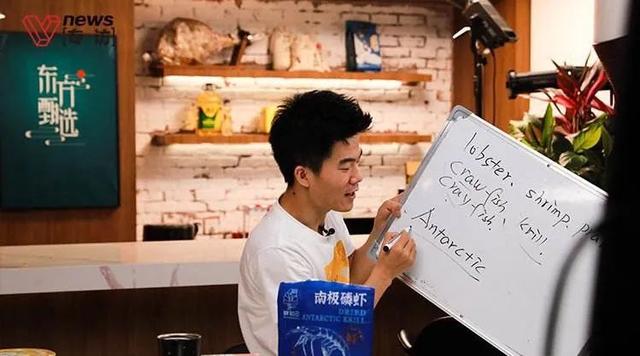 news
[专访]
东方
甄选
lobster、shrimp.
crawfish、
crayfish.
krill.
Antarctic
南极磷虾
DRIED
ANTARCTIC KRILL